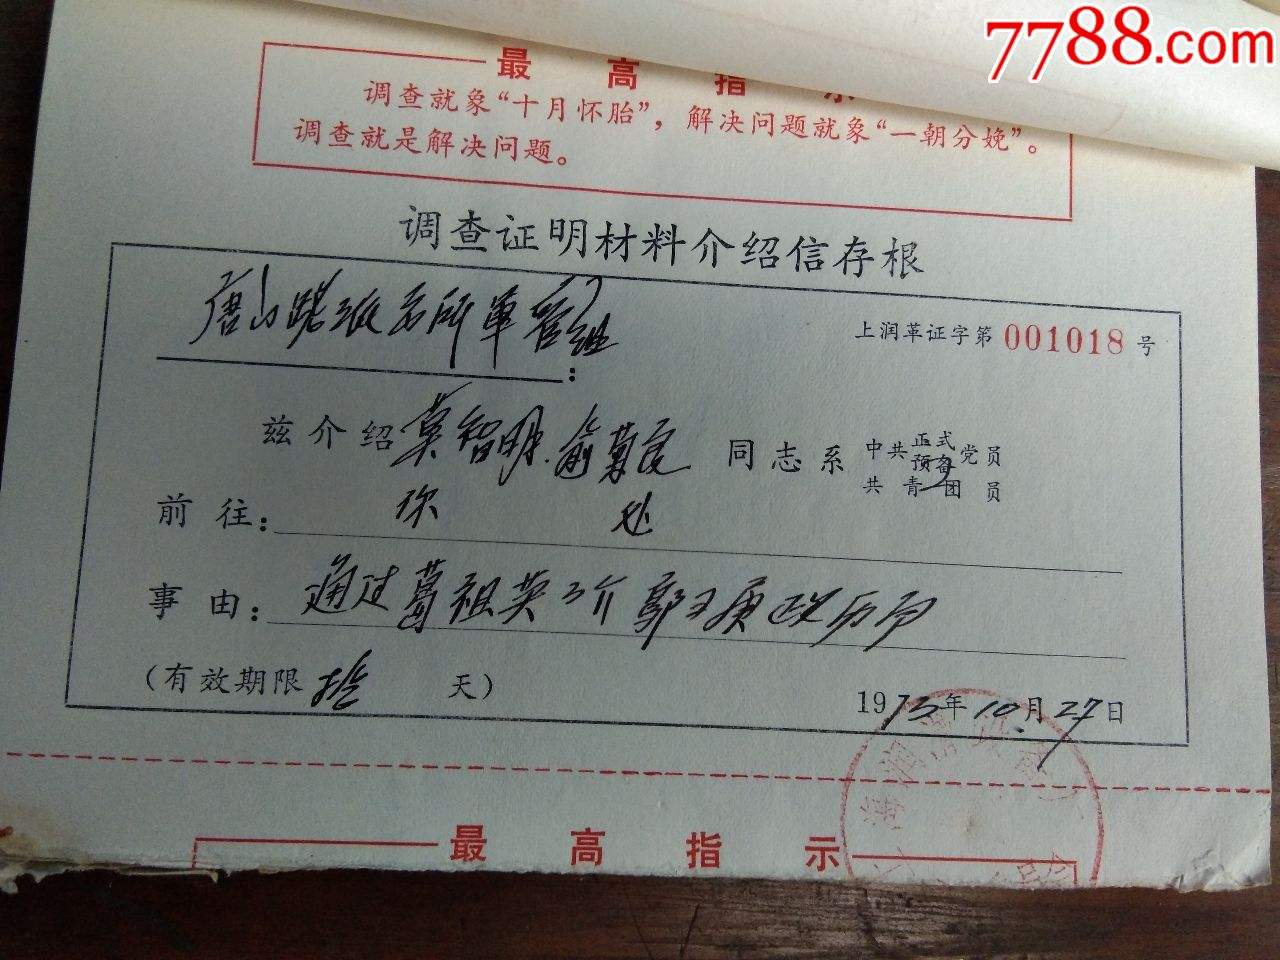 7788.com
最高指示
调查就象“十月怀胎”，解决问题就象“一朝分娩”。
调查就是解决问题。
调查证明材料介绍信存根
唐山路派出所军管组：
上润革证字第001018号
兹介绍莫智明.俞 同志系中共正式预备党员共青团员
前往：你处
事由：通过葛祖英了介郭 政历
（有效期限拾天）
1973年10月27日
最高指示